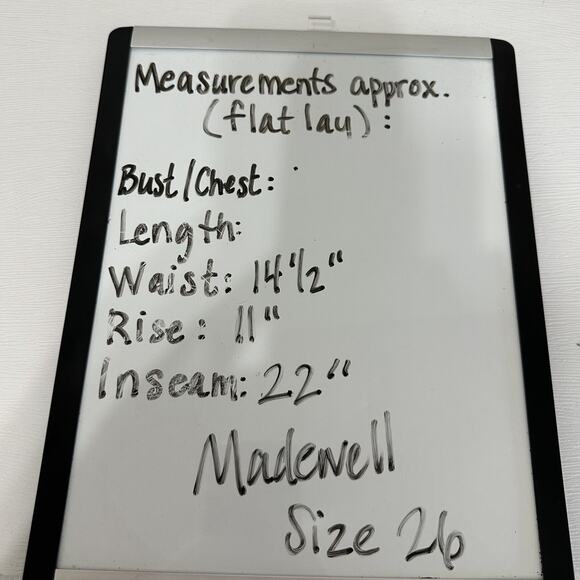 Measurements approx.
(flat lay):
Bust/Chest:
Length:
Waist: 14 1/2"
Rise: 11"
Inseam: 22"
Madewell
Size 26